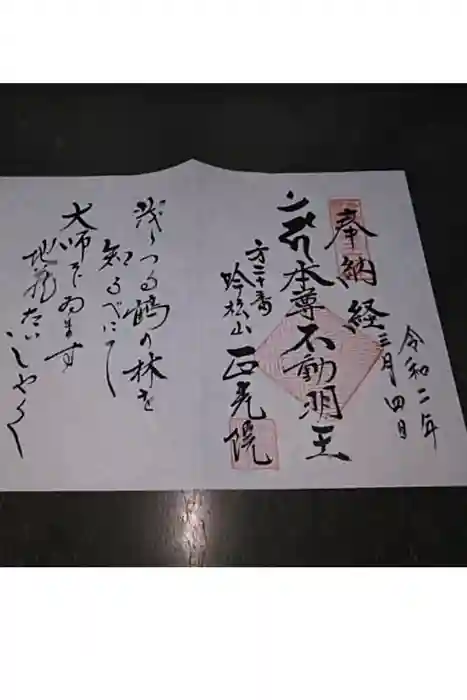 奉納経
令和二年
三月四日
本尊不動明王
方二十番
吟松山正光院
茂りつる鶴の林を
知るべにて
大師でゐます
地蔵たいしやく